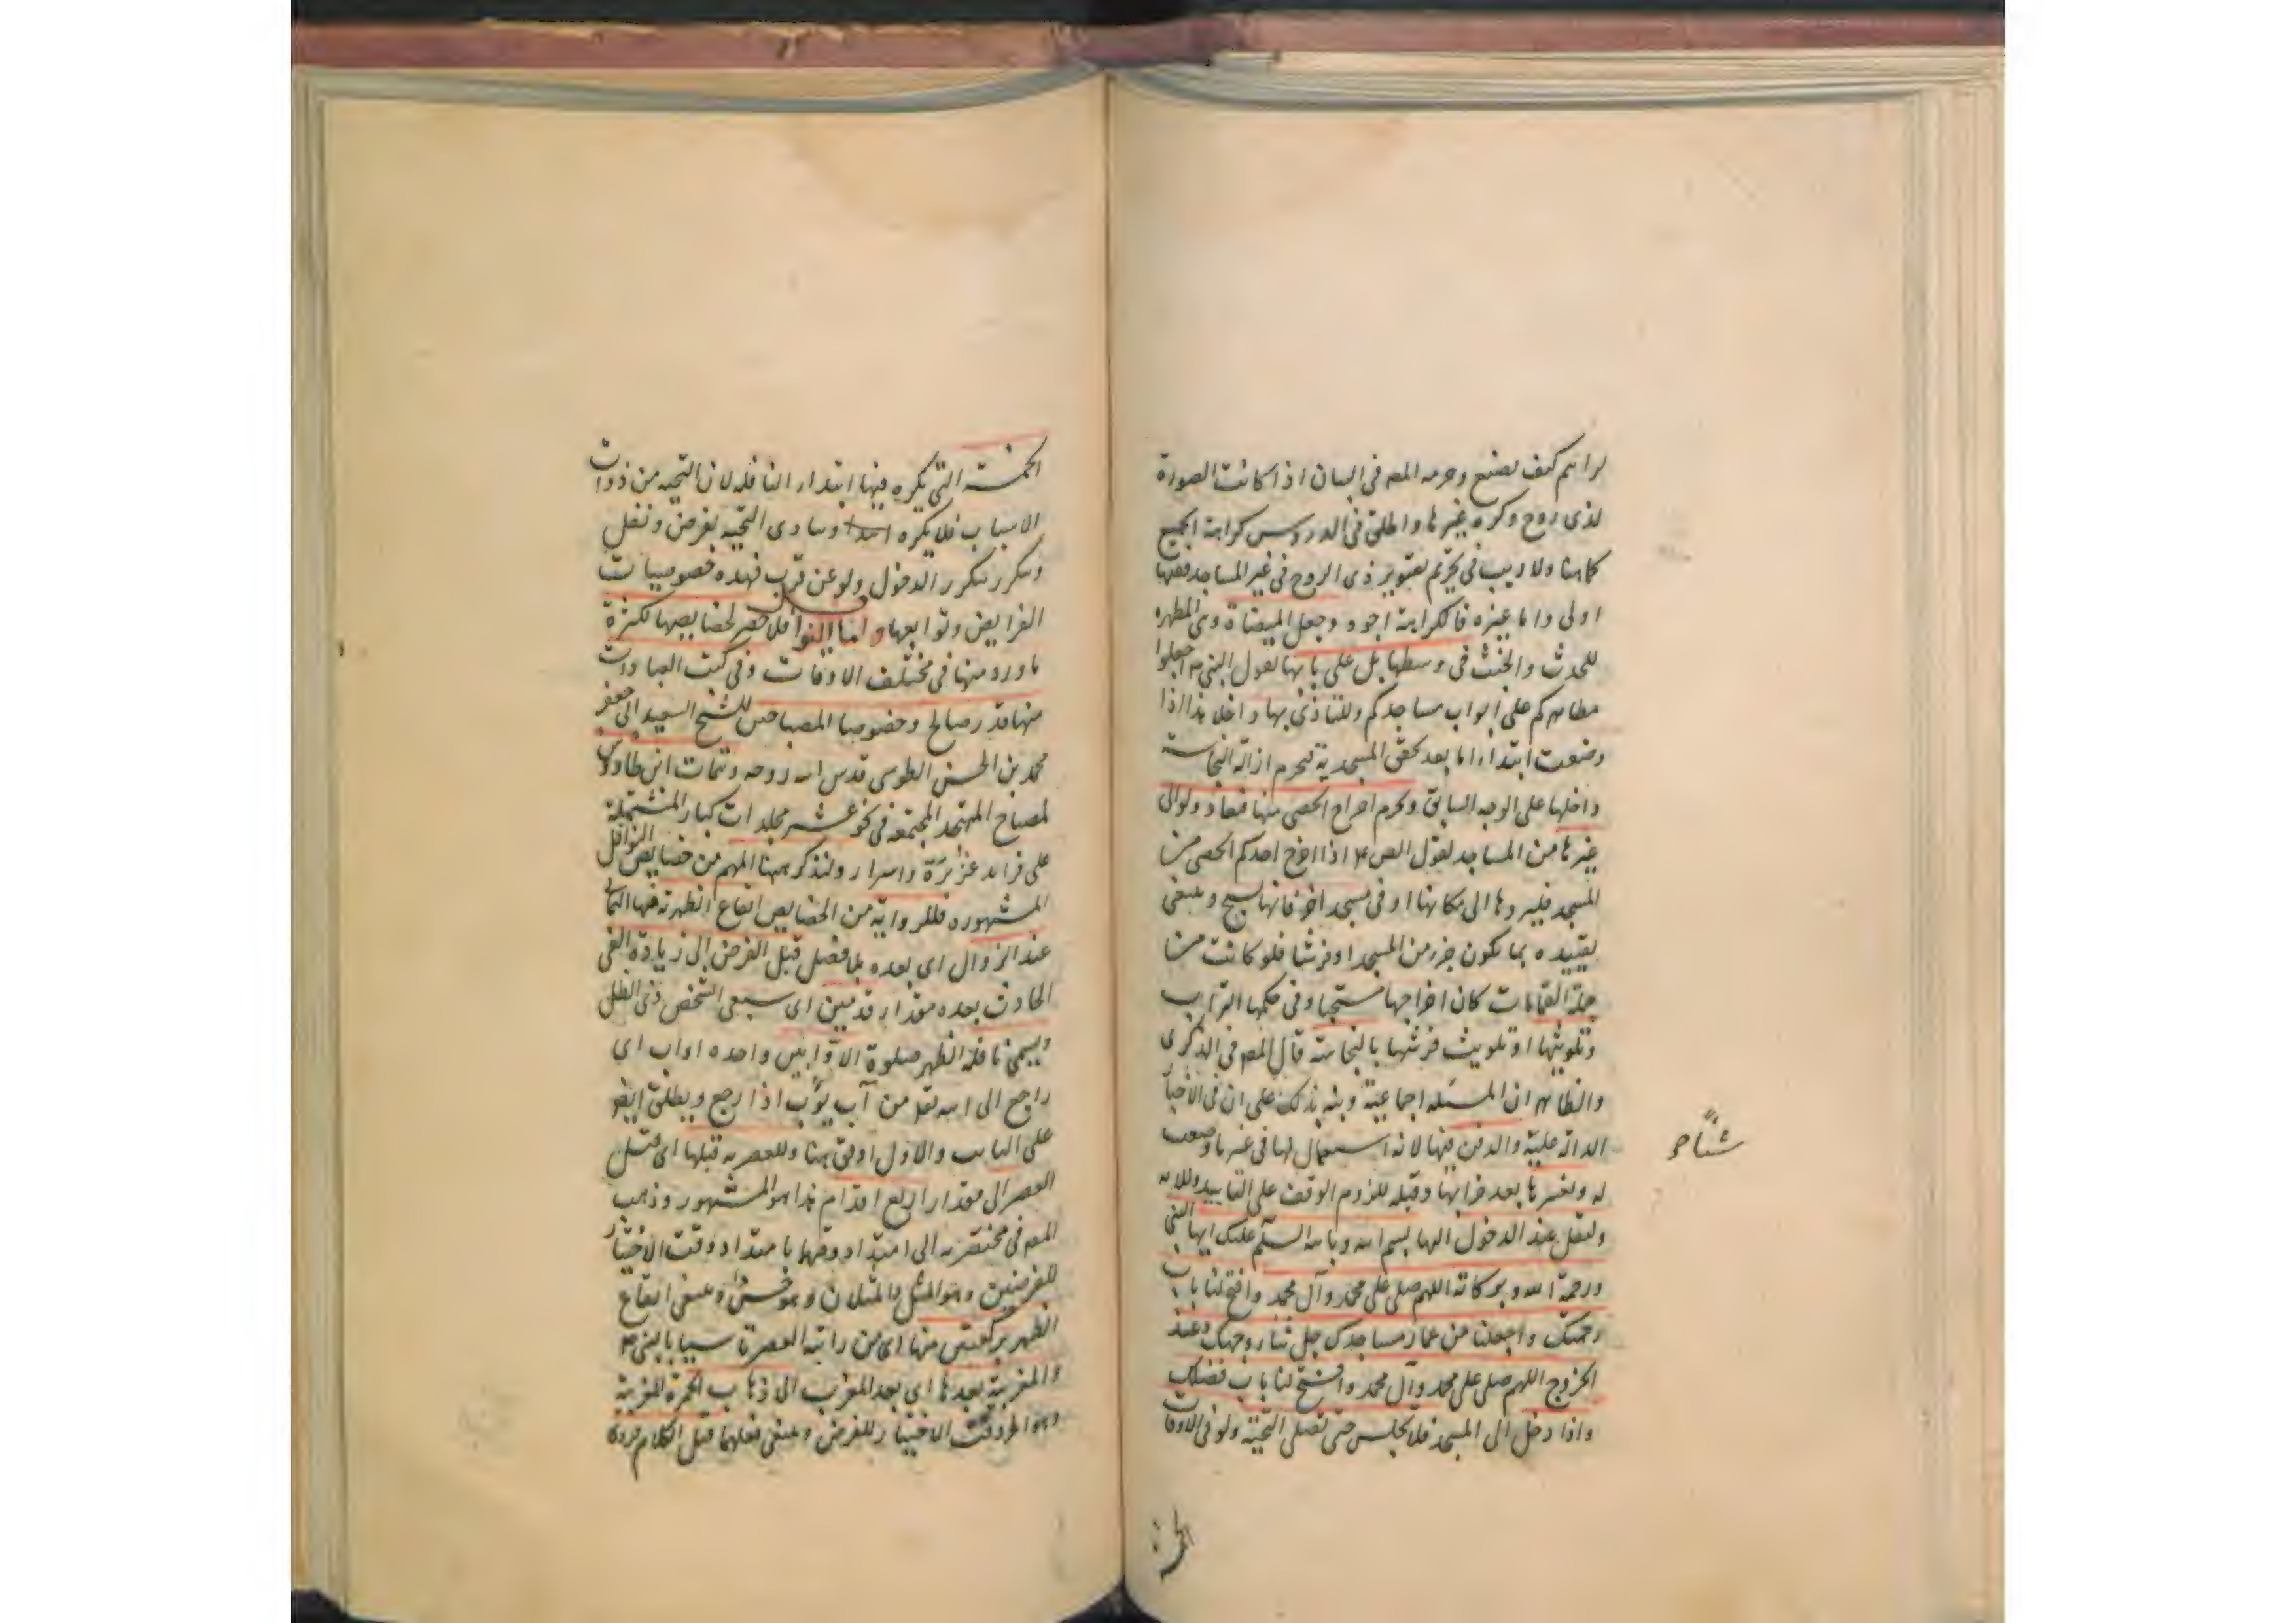 لرايتم كيف يصنع وحرمه المصـ في البيان اذا كانت الصورة
لذي روح وكره غيرها واطلق في الدروس كراهة الجميع
كما هنا ولا ريب في تحريم تصوير ذي الروح في غير المساجد ففيها
اولى واما غيره فالكراهة اجود وجعل الميضاة وهي المطهره
للحدث والخبث في وسطها بل على بابها لقول النبي ص اجعلوا
مطاهركم على ابواب مساجدكم وللتاذي بها داخلا هذا اذا
وضعت ابتداء اما بعد تحقق المسجدية فيحرم ازالة النجاسة
داخلها على الوجه السابق ويحرم اخراج الحصى منها فتعاد ولو الى
غيرها من المساجد لقول الص ع اذا اخرج احدكم الحصى من
المسجد فليردها الى مكانها او في مسجد اخر فانها تسبح وينبغي
تقييده بما يكون جزء من المسجد او فرشا فلو كانت من
جملة القمامات كان اخراجها مستحبا وفي حكمها التراب
وتلويثها او تلويث فرشها بالنجاسة قال المصـ في الذكرى
والظاهر ان المسئله اجماعية ونبه بذلك على ان في الاخبار
الدالة عليه والدفن فيها لانه استعمال لها في غير ما وضعت
له وتغييرها بعد خرابها وقبله للزوم الوقف على التاييد
وليقل عند الدخول اليها بسم الله وبالله السلم عليك ايها النبي
ورحمة الله وبركاته اللهم صلى على محمد وآل محمد وافتح لنا باب
رحمتك واجعلنا من عمار مساجدك جل ثناء وجهك وعند
الخروج اللهم صلى على محمد وآل محمد وافتح لنا باب فضلك
واذا دخل الى المسجد فلا يجلس حتى يصلى التحية ولو في الاوقات
الخمسة
الخمسة التي يكره فيها ابتداء النافله لان التحيه من ذوات
الاسباب فلا يكره وتتادى التحيه بفرض ونفل
وتتكرر بتكرر الدخول ولو عن قرب فهذه خصوصيات
الفرايض وتوابعها واما النوافل فلا حصر لخصايصها لكثرة
ما ورد منها في مختلف الاوقات وفي كتب العبادات
منها قدر صالح وخصوصا المصباحين للشيخ السعيد ابى جعفر
محمد بن الحسن الطوسي قدس الله روحه وتتمات ابن طاوس
لمصباح المتهجد المجتمعه في نحو عشر مجلدات كبار المشتملة
على فرايد عزيزة واسرار ولنذكر ههنا المهم من خصايص النوافل
المشهوره فللرواتب من الخصايص ايقاع الظهرية فيها الثماني
عند الزوال اى بعده بلا فصل قبل الفرض الى زيادة الفي
الحادث بعده مقدار قدمين اى سبعي الشخص ذي الظل
ويسمى نافلة الظهر صلوة الاوابين واحده اواب اى
راجع الى الله تعـ من آب يؤب اذا رجع ويطلق ايضا
على التايب والاول اوفق هنا وللعصر به قبلها اى قبل
العصر الى مقدار اربع اقدام هذا هو المشهور وذهب
المصـ في مختصريه الى امتداد وقتها بامتداد وقت الاختيار
للفرضين وهو المثل والمثلان وهو حسن وينبغى ايقاع
الظهر بركعتين منها اى من راتبة العصر تاسيا بالنبي ص
والمغربية بعدها اى بعد المغرب الى ذهاب الحمرة المغربية
وهو اخر وقت الاختيار للفرض وينبغى فعلهما قبل الكلام